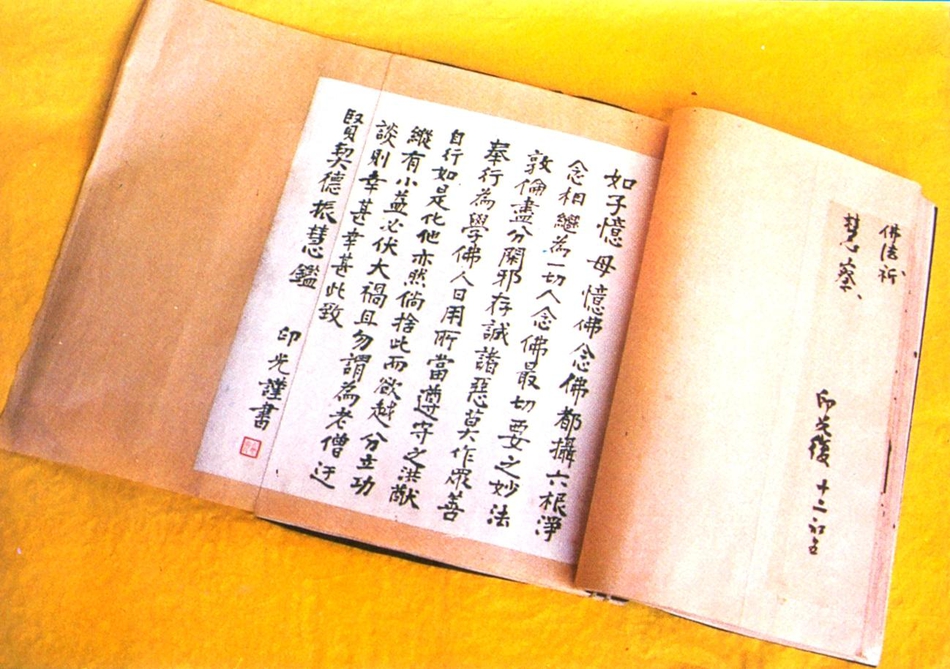 佛法祈
慧察、
印光復 十二初五
如子憶母憶佛念佛都攝六根淨
念相繼為一切人念佛最切要之妙法
敦倫盡分閑邪存誠諸惡莫作眾善
奉行為學佛人日用所當遵守之洪猷
自行如是化他亦然倘捨此而欲越分立功
縱有小益必伏大禍且勿謂為老僧迂
談則幸甚幸甚此致
賢契德振慧鑑
印光謹書